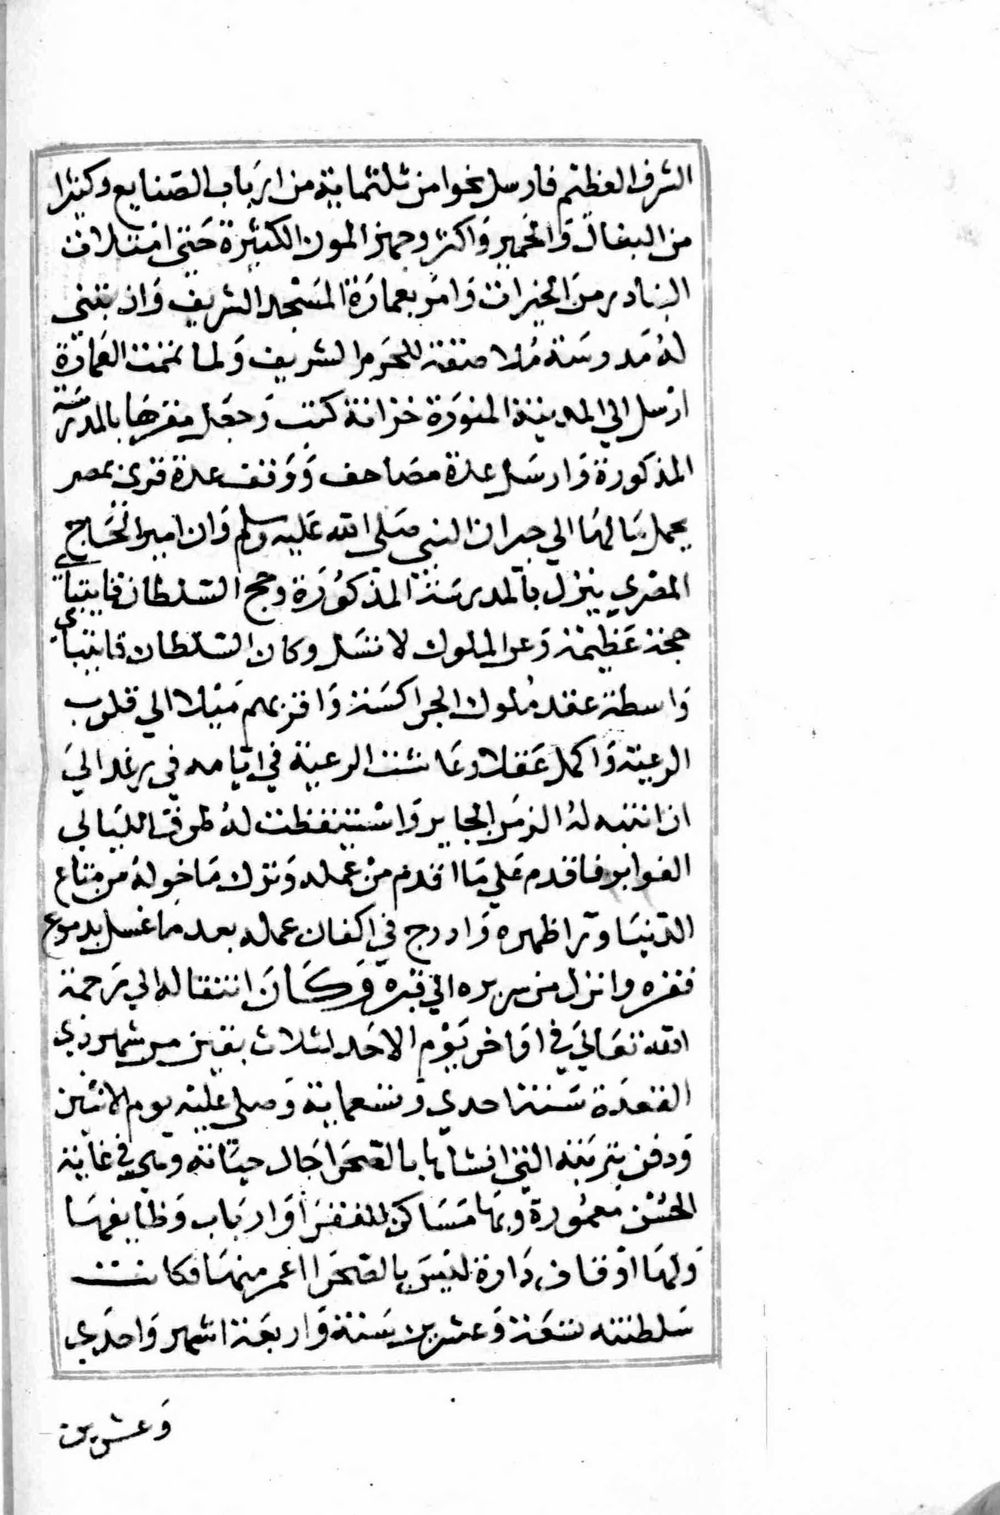 الشرف العظيم فارسل نحوا من ثلثماية من ارباب الصنايع وكثيرا
من البغال والحمير واكثر وجهز المون الكثيرة حتى امتلات
البنادر من الخيرات وامر بعمارة المسجد الشريف وان تبنى
له مدرسة ملاصقة للحرم الشريف ولما تمت العمارة
ارسل الي المدينة المنورة خزانة كتب وجعل مقرها بالمدرسة
المذكورة وارسل عدة مصاحف ووقف عدة قرى بمصر
يحمل مالها الي جيران النبي صلى الله عليه وسلم وان امير الحاج
المصري ينزل بالمدرسة المذكورة وحج السلطان قايتباي
حجة عظيمة وعن الملوك لا تسل وكان السلطان قايتباي
واسطة عقد ملوك الجراكسة واقربهم ميلا الي قلوب
الرعية واكمل عقلا وعاشت الرعية في ايامه في رغد الي
ان انتبه له الزمن الجاير واستيقظت له طوق الليالي
الغوابر فاقدم علي ما اقدم من عمله وترك ما خوله من متاع
الدنيا ورا ظهره وادرج في اكفان عمله بعد ما غسل بدموع
فقره وانزل من سريره الي قبره وكان انتقاله الي رحمة
الله تعالي في اواخر يوم الاحد لثلاث بقين من شهر ذي
القعدة سنة احدي وتسعماية وصلي عليه يوم الاثنين
ودفن بتربته التي انشاها بالصحرا حال حياته وهي في غاية
الحسن معمورة وبها مساكن للفقرا وارباب وظايفها
ولها اوقاف دارة ليس بالصحرا اعمر منها فكانت
سلطنته تسعة وعشرين سنة واربعة اشهر واحدي
وعشرين